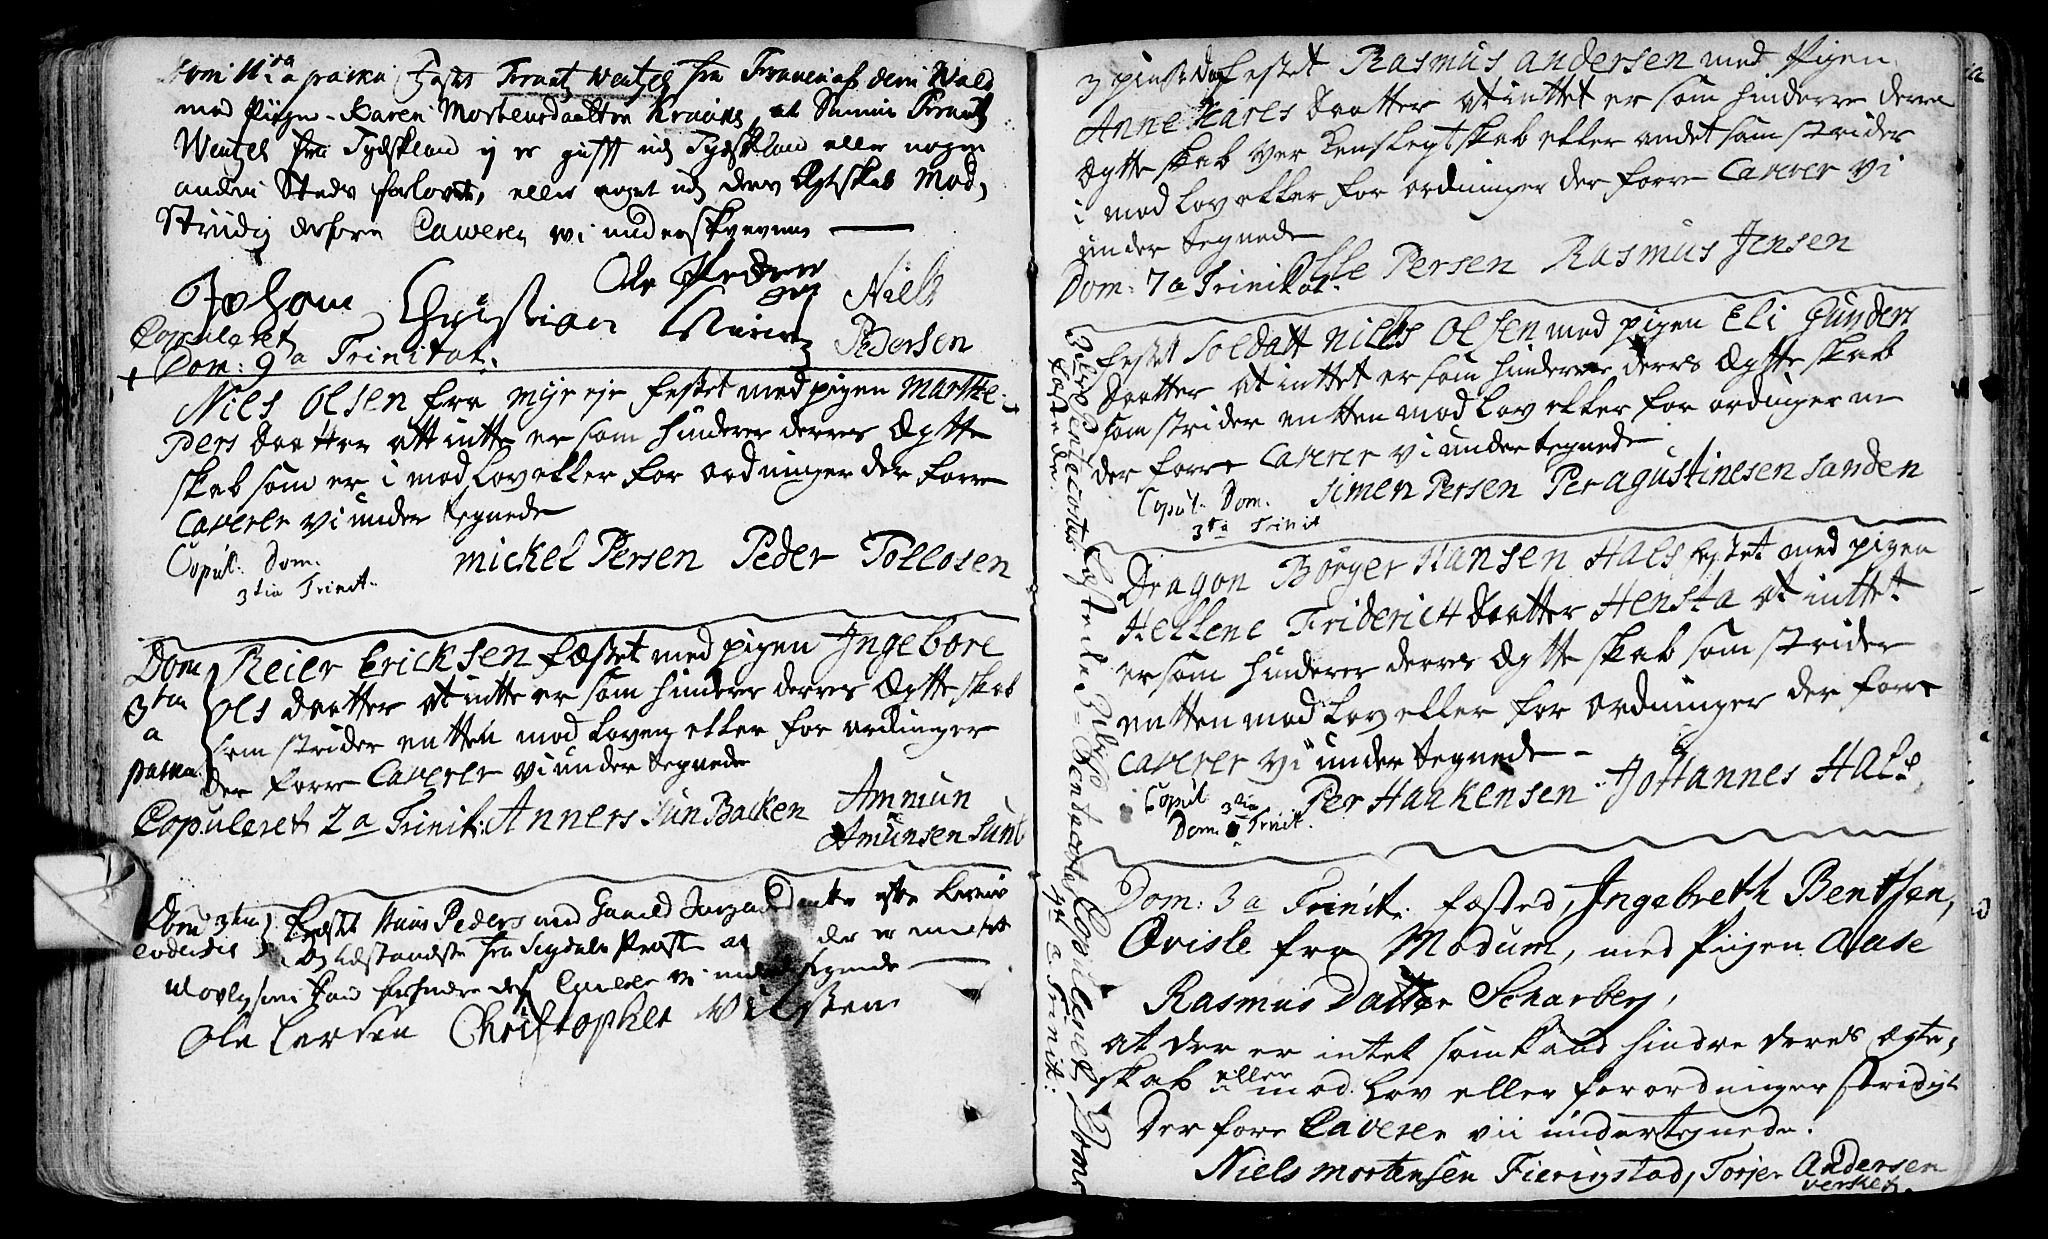 Dom: 11da a pascha fæstet Frantz Wentzel fra Frauen auf dem Wald
med Piigen Karen Mortensdaatter Kraaka, at Samme Frantz
Wentzel fra Tydskland ej er gifft udi Tydskland eller nogen
anden Steds forlovet, eller noget udi deres Egteskab Mod,
Striidig derfore Cawerer vi underskrevne
Ole Pedersen
Johan Christian
Niels
Pedersen
Copuleret
Dom: 9 a Trinitat:
Niels Olsen fra Myreje festet med pigen Marthe
Pers Daatter att inttet er som hinderer deres Ægtte
skab som er i mod Lov eller for ordninger der forre
Caverer vi under tegnede
Copul: Dom.
3tia Trinit.
Mickel Persen Peder Tollosen
Dom
3tia
a
pascha
Reier Ericksen fæstet med pigen Ingebore
Ols daatter at intte er som hinderer deres Ægtteskab
som strider entten mod Loven eller for ordinger
der forre Caverer vi under tegnede
Copuleret 2 a Trinit: Anners Sun Backen Ammun
Amunsen Sunb
Dom 3tia
eodem die
Fæstet Hans Peders med Gunild
Og fra Sigdals Præst at der er intet
ulovlig som kand forhindre des Caverer vi under tegnede
Ole Larsen Christopher Nilsen
3 pintsedag festet Rasmus Andersen med Pigen
Anne Kares Daatter at inttet er som hinderer deres
Ægtte skab ver Venskegtskab eller andet som strider
i mod Lov eller for ordninger der forre Caverer vi
under tegnede
Olle Persen Rasmus Jensen
Dom: 7 a Trinitat:
festet Soldatt Niels Olsen med pigen Eli Gunders
Daatter at inttet er som hinderer deres Ægtte skab
som strider entten mod Lov eller for ordinger ne
der forre Caverer vi under tegnede
Simen Persen Per Agustinesen Sanden
Copul: Dom.
3tia Trinit
Dragon Börger Hansen Hals festet med pigen
Hellene Friderich Daatter Hensta at inttet
er som hinderer deres Ægtte skab som strider
entten mod Lov eller for ordninger der forre
Caverer vi under tegnede
Copul 3tia
Dom: Trinit.
Per Haakensen Johannes Hals
Dom: 3 a Trinit: fæsted, Ingebreth Bentsen,
Qvisle fra Modum, med Piigen Aase
Rasmus Datter Scharberg,
at der er intet som kand hindre deres ægte,
skab eller i mod Lov eller forordninger stridigt
Der fore Caverer vii undertegnede.
Niels Mortensen Fierigstad, Torjer Andersen
Versket.
3die Pentecostes
fæstede.
Fæstede 3die Pentecostes Copuleret Domi
7de a Trinit: